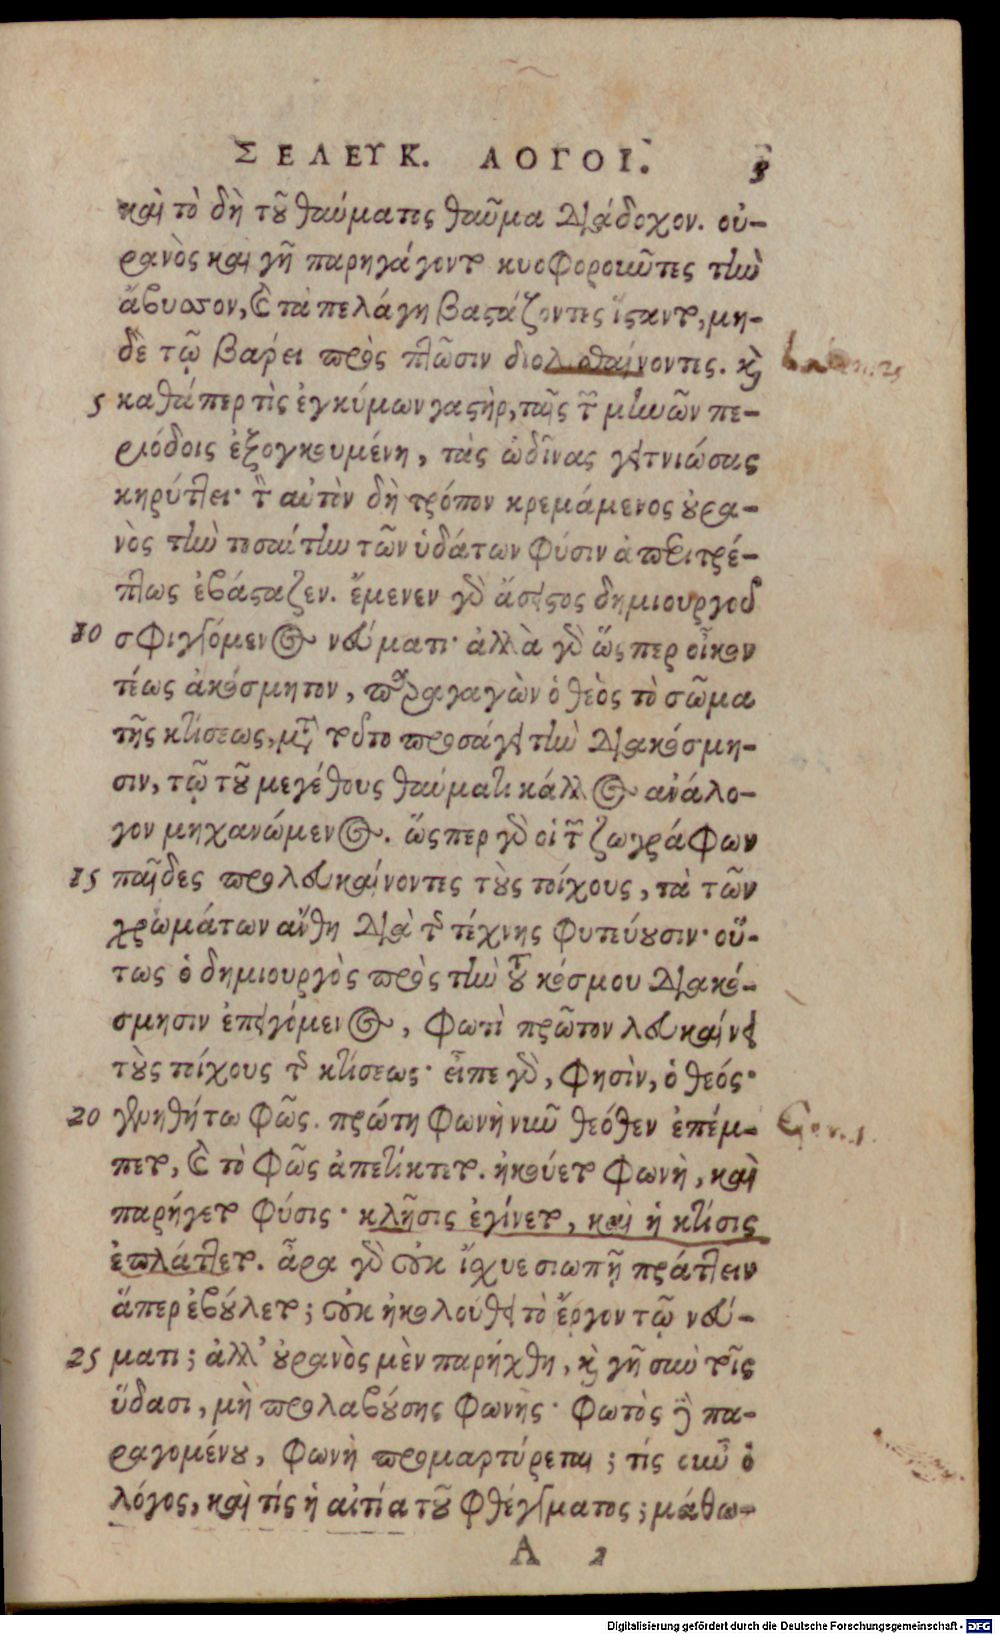 ΣΕΛΕΥΚ. ΛΟΓΟΙ. 3
καὶ τὸ δὴ τοῦ θαύματος θαῦμα διάδοχον. οὐ-
ρανὸς καὶ γῆ παρηγάγοντο κυοφοροῦντες τὴν
ἄβυσσον, καὶ τὰ πελάγη βαστάζοντες ἵσταντο, μη-
δὲ τῷ βάρει πρὸς πτῶσιν διολισθαίνοντες. καὶ
5 καθάπερ τὶς ἐγκύμων γαστὴρ, ταῖς τῶν μηνῶν πε-
ριόδοις ἐξογκουμένη, τὰς ὠδῖνας γειτνιώσας
κηρύττει· τὸν αὐτὸν δὴ τρόπον κρεμάμενος οὐρα-
νὸς τὴν τοσαύτην τῶν ὑδάτων φύσιν ἀπεριτρέ-
πτως ἐβάσταζεν. ἔμενεν γὰρ ἄσειστος δημιουργοῦ
10 σφιγγόμενος νεύματι· ἀλλὰ γὰρ ὥσπερ οἶκον
τέως ἀκόσμητον, παραγαγὼν ὁ θεὸς τὸ σῶμα
τῆς κτίσεως, μετὰ τοῦτο προσάγει τὴν διακόσμη-
σιν, τῷ τοῦ μεγέθους θαύματι κάλλος ἀνάλο-
γον μηχανώμενος. ὥσπερ γὰρ οἱ τῶν ζωγράφων
15 παῖδες προλευκαίνοντες τοὺς τοίχους, τὰ τῶν
χρωμάτων ἄνθη διὰ τῆς τέχνης φυτεύουσιν· οὕ-
τως ὁ δημιουργὸς πρὸς τὴν τοῦ κόσμου διακό-
σμησιν ἐπειγόμενος, φωτὶ πρῶτον λευκαίνει
τοὺς τοίχους τῆς κτίσεως· εἶπε γὰρ, φησὶν, ὁ θεός·
20 γενηθήτω φῶς. πρώτη φωνὴ νῦν θεόθεν ἐπέμ- Gen. 1.
πετο, καὶ τὸ φῶς ἀπετίκτετο. ἠκούετο φωνὴ, καὶ
παρήγετο φύσις· κλῆσις ἐγίνετο, καὶ ἡ κτίσις
ἐπλάττετο. ἆρα γὰρ οὐκ ἴσχυε σιωπῇ πράττειν
ἅπερ ἐβούλετο; οὐκ ἠκολούθει τὸ ἔργον τῷ νεύ-
25 ματι; ἀλλ' οὐρανὸς μὲν παρήχθη, καὶ γῆ σὺν τοῖς
ὕδασι, μὴ προλαβούσης φωνῆς· φωτὸς δὲ πα-
ραγομένου, φωνὴ προμαρτύρεται; τίς οὖν ὁ
λόγος, καὶ τίς ἡ αἰτία τοῦ φθέγματος; μάθω-
A 2
Digitalisierung gefördert durch die Deutsche Forschungsgemeinschaft - DFG